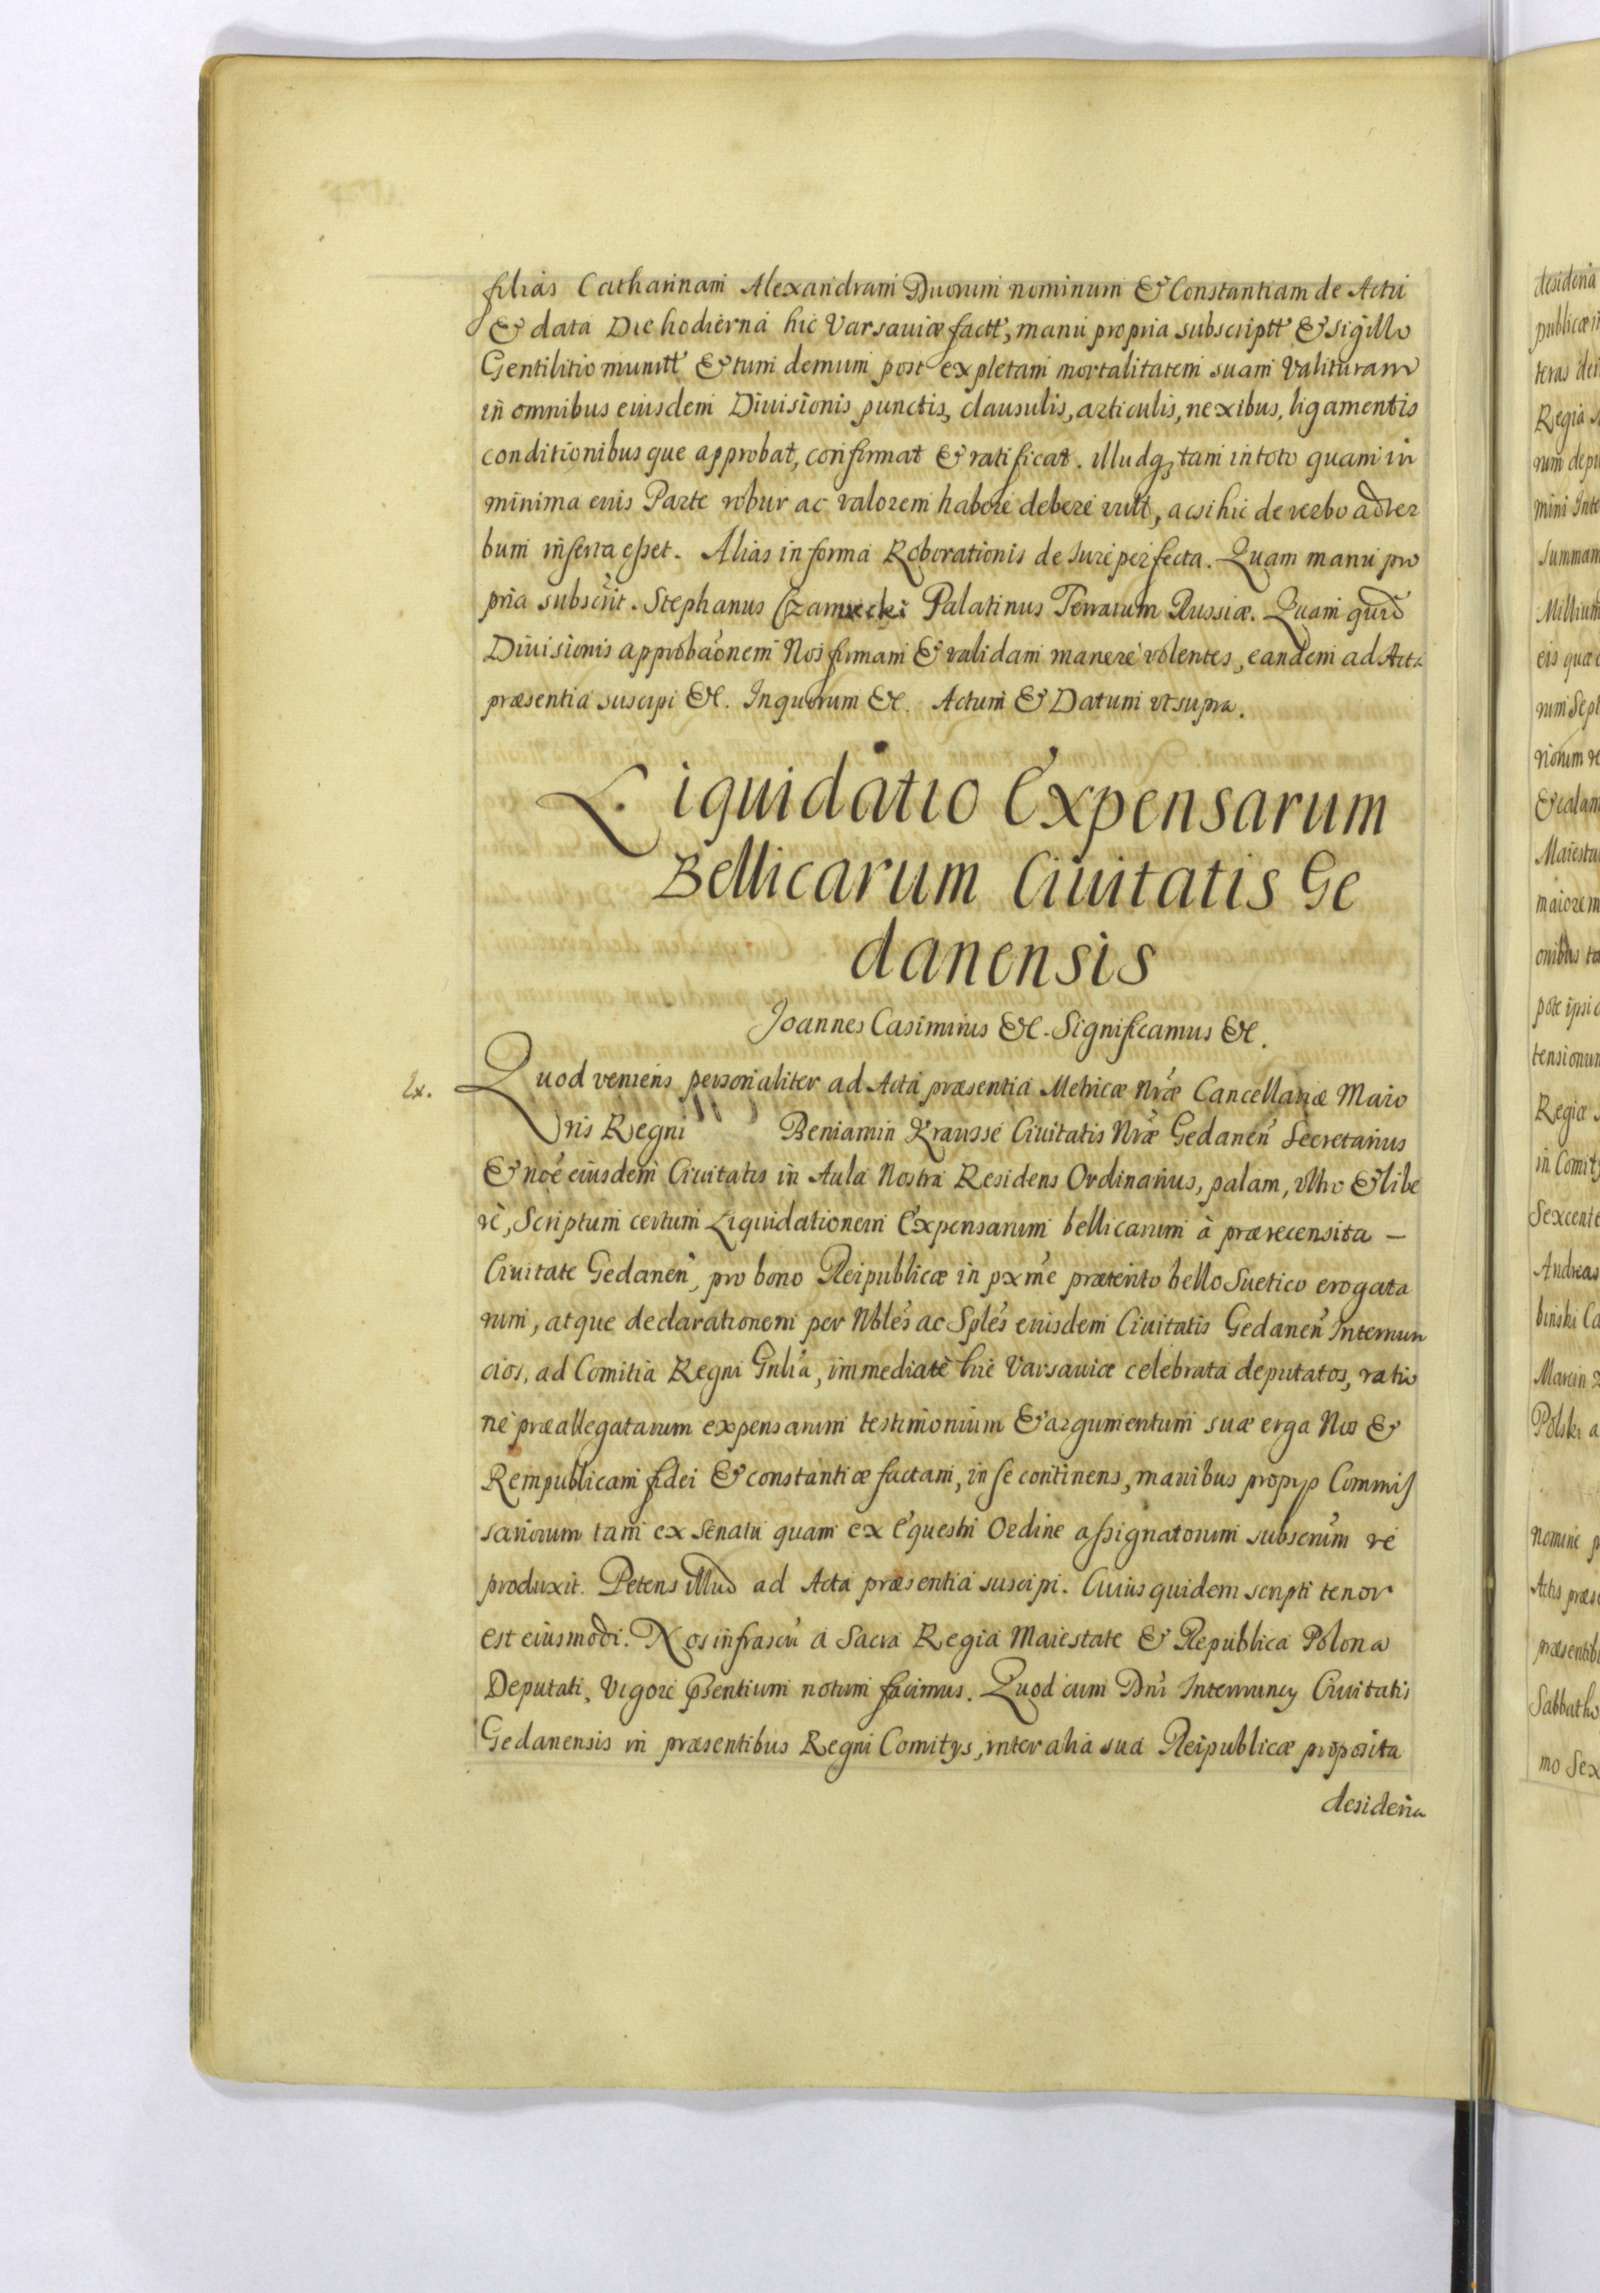 filias Catharinam Alexandram Duorum nominum & Constantiam de Actu
& data Die hodierna hic Varsauiæ factt, manu propria subscriptt & sigillo
Gentilitio munitt & tum demum post expletam mortalitatem suam Valituram
in omnibus eiusdem Diuisionis punctis, clausulis, articulis, nexibus, ligamentis
conditionibus que approbat, confirmat & ratificat. illudq, tam in toto quam in
minima eius Parte robur ac valorem habere debere vult, acsi hic de verbo ad ver
bum inserta esset. Alias in forma Roborationis de Jure perfecta. Quam manu pro
pria subscrit. Stephanus Czarnecki Palatinus Terrarum Russiæ. Quam quid
Diuisionis approbaonem Nos firmam & validam manere volentes, eandem ad Acta
præsentia suscipi &c. In quorum &c. Actum & Datum vt supra.
Liquidatio Expensarum
Bellicarum Ciuitatis Ge
danensis
Joannes Casimirus &c. Significamus &c.
Ex. Quod veniens personaliter ad Acta præsentia Metricæ Nræ Cancellariæ Maio
ris Regni Beniamin Krausse Ciuitatis Nræ Gedanen Secretarius
& noe eiusdem Ciuitatis in Aula Nostra Residens Ordinarius, palam, vltro & libe
rè, Scriptum certum Liquidationem Expensarum bellicarum à prærecensita –
Ciuitate Gedanen, pro bono Reipublicæ in pxme præterito bello Suetico erogata
rum, atque declarationem per Nbles ac Sples eiusdem Ciuitatis Gedanen Internun
cios, ad Comitia Regni Gnlia, immediatè hic Varsauiæ celebrata deputatos, ratio
ne præallegatarum expensarum testimonium & argumentum suæ erga Nos &
Rempublicam fidei & constantiæ factam, in se continens, manibus propijs Commis
sariorum tam ex Senatu quam ex Equestri Ordine assignatorum subscrium re
produxit. Petens illud ad Acta præsentia suscipi. Cuius quidem scripti tenor
est eiusmodi. Nos infrascri a Sacra Regia Maiestate & Republica Polona
Deputati, Vigore pntium notum facimus. Quod cum Dni Internuncij Ciuitatis
Gedanensis in præsentibus Regni Comitijs, inter alia sua Reipublicæ proposita
desideria